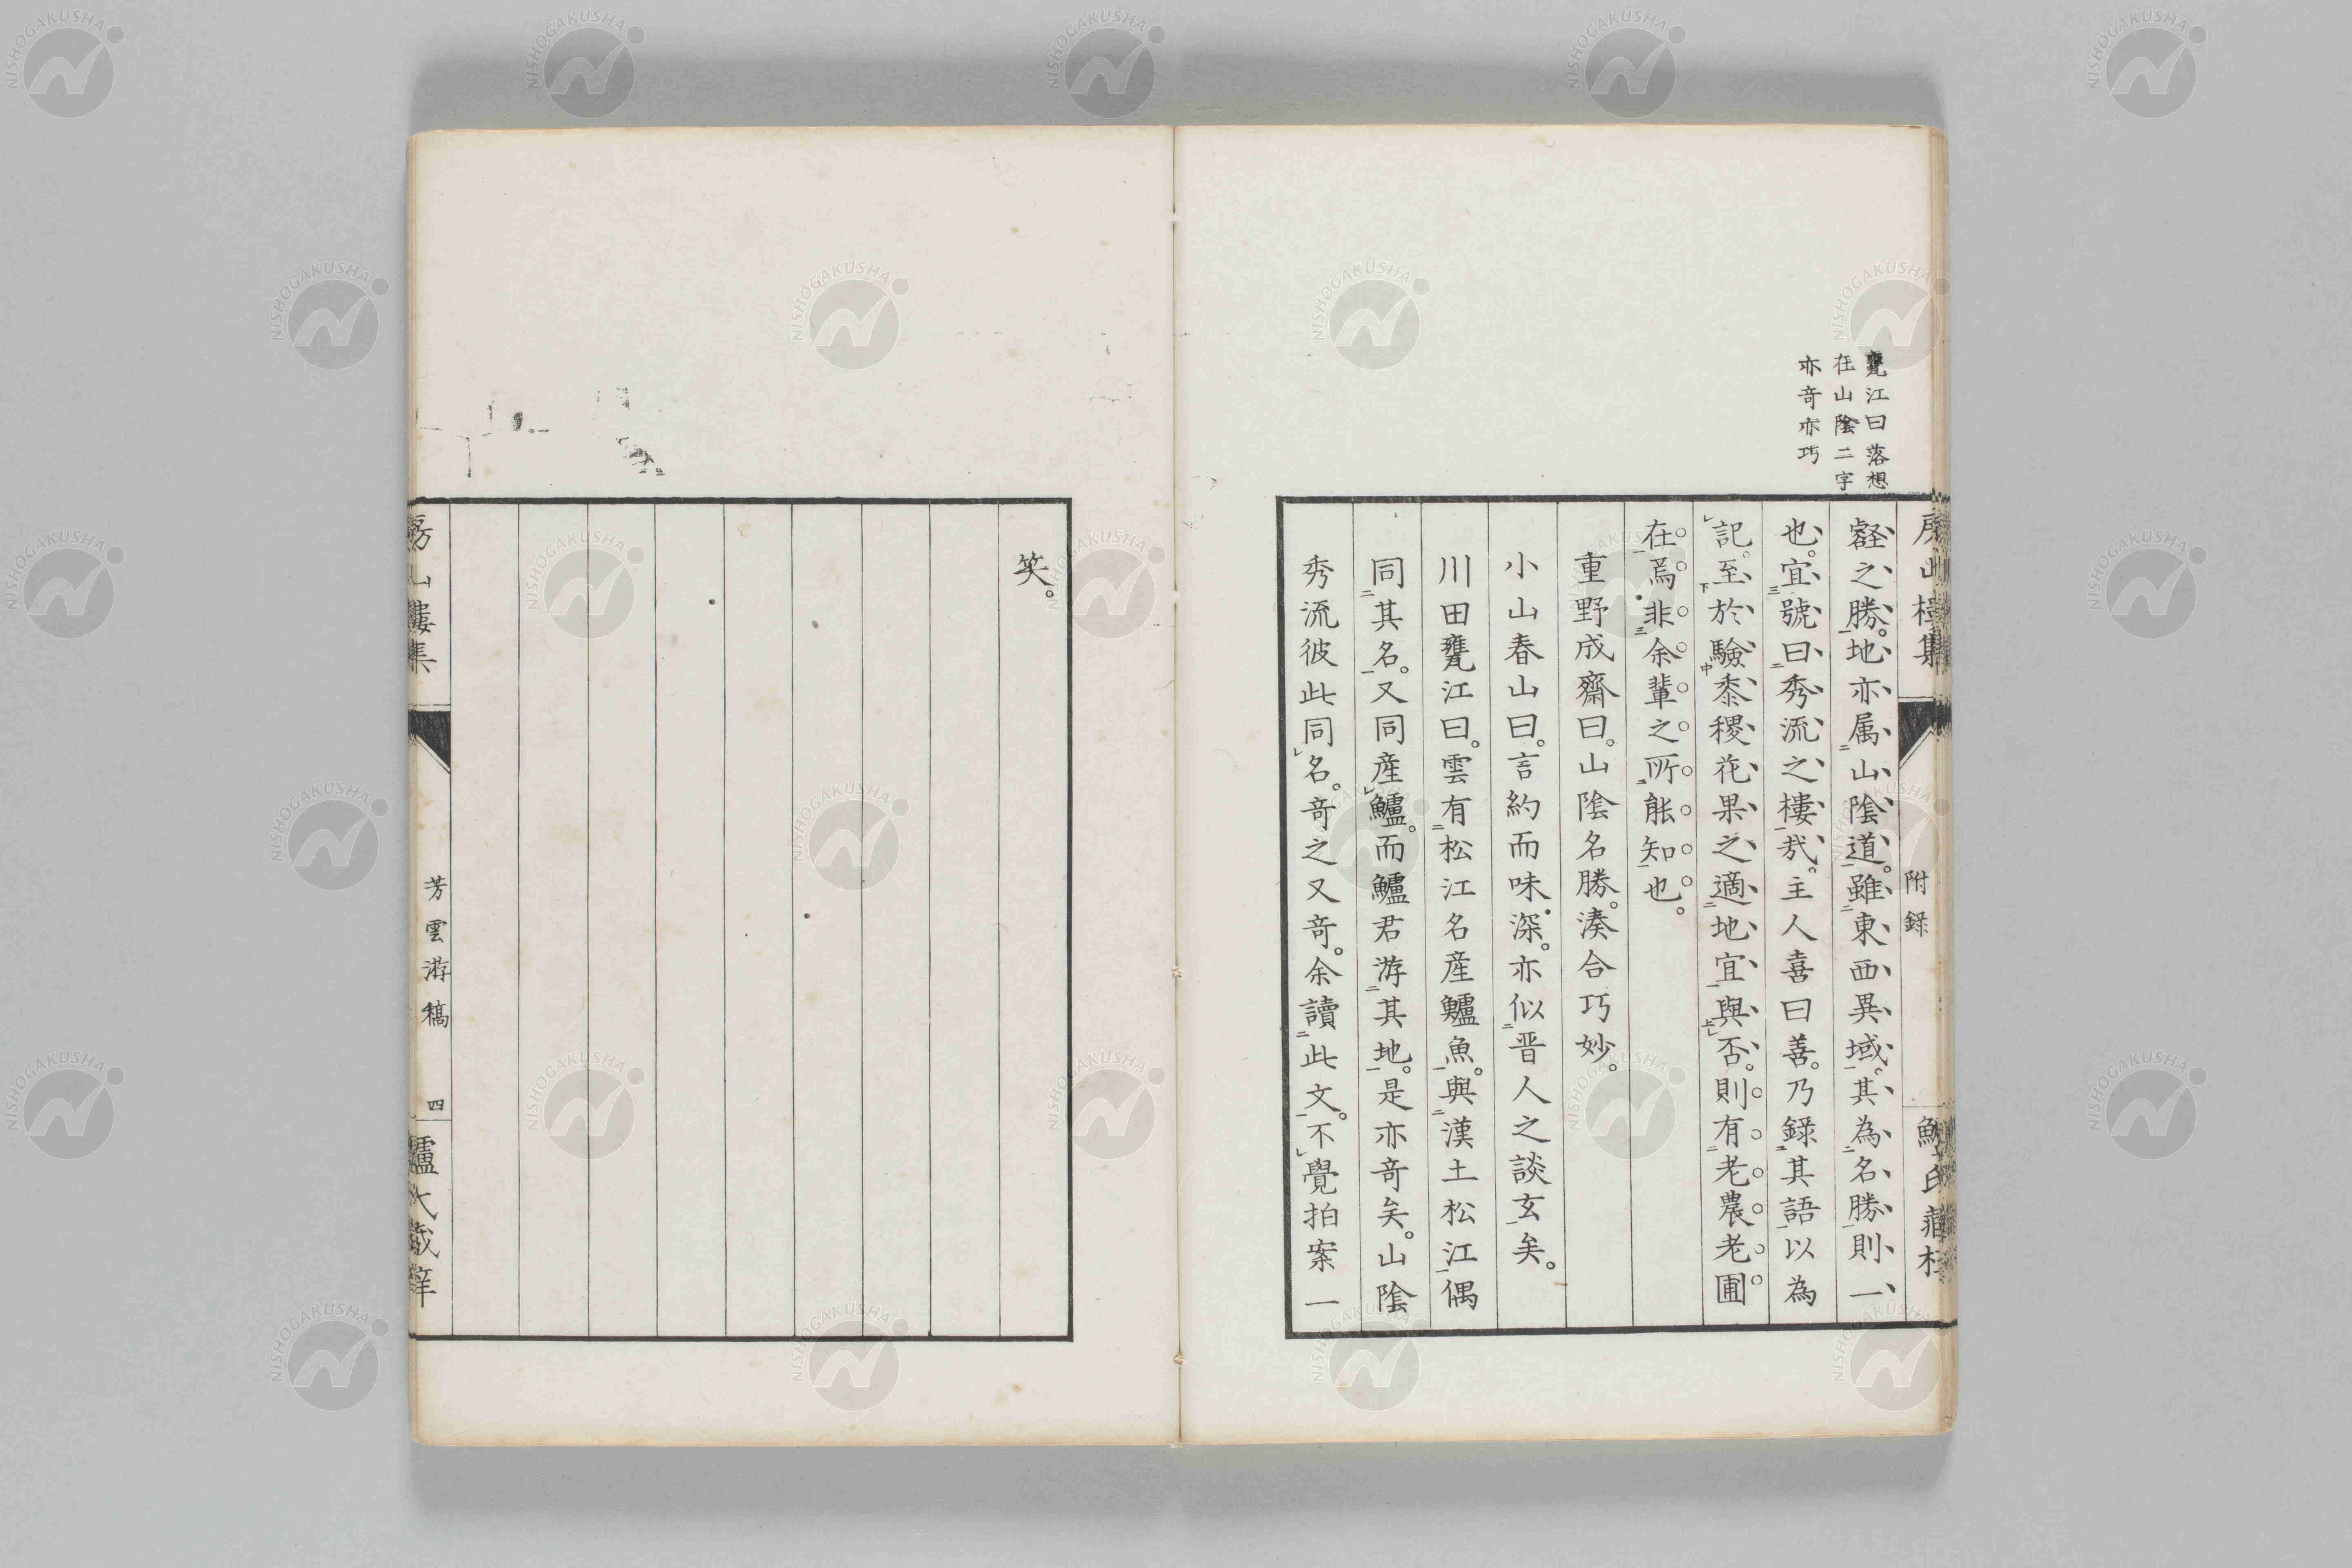 甕江曰落想
在山陰二字
亦奇亦巧
附録
壑之勝。地亦属山陰道。雖東西異域。其為名勝則一
也。宜號曰秀流之樓哉。主人喜曰善。乃錄其語以為
記。至於驗黍稷花果之適地宜與否。則有老農老圃
在焉。非余輩之所能知也。
重野成齋曰。山陰名勝。湊合巧妙。
小山春山曰。言約而味深。亦似晋人之談玄矣。
川田甕江曰。雲有松江名産鱸魚。與漢土松江偶
同其名。又同産鱸。而鱸君游其地。是亦奇矣。山陰
秀流彼此同名。奇之又奇。余讀此文。不覺拍案一
笑。
房山樓集
芳雲游稿
四